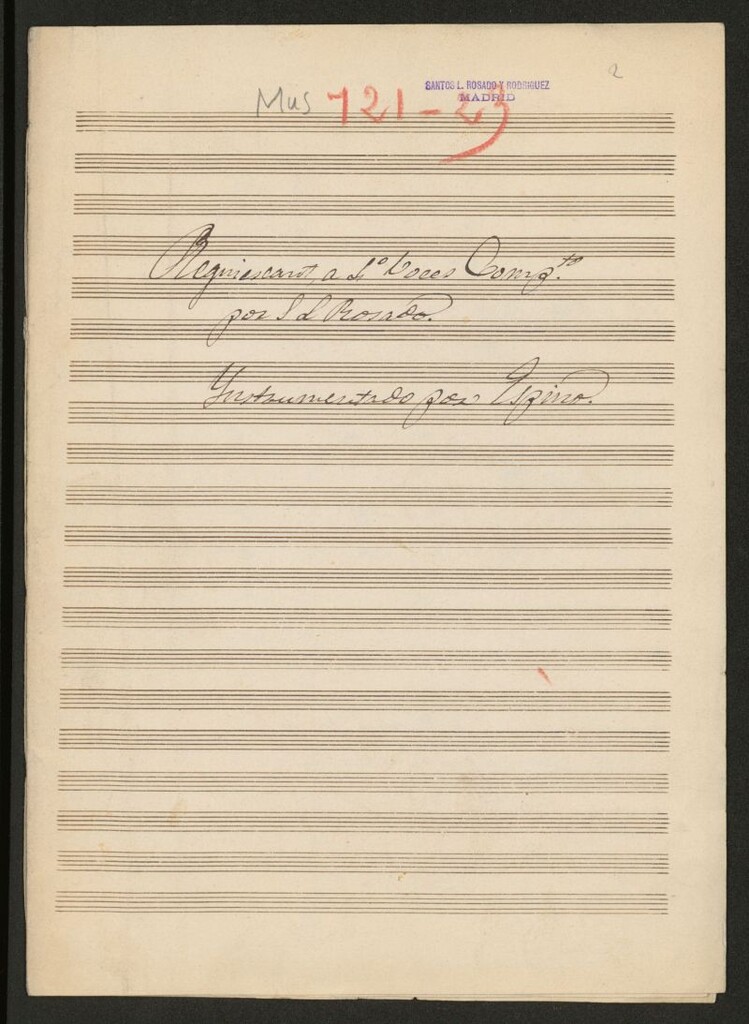 2
SANTOS L. ROSADO Y RODRIGUEZ
MADRID
Mus 721-23
Requiescant, a 4º Voces Compto
por S L Rosado.
Ynstrumentado por Espino.